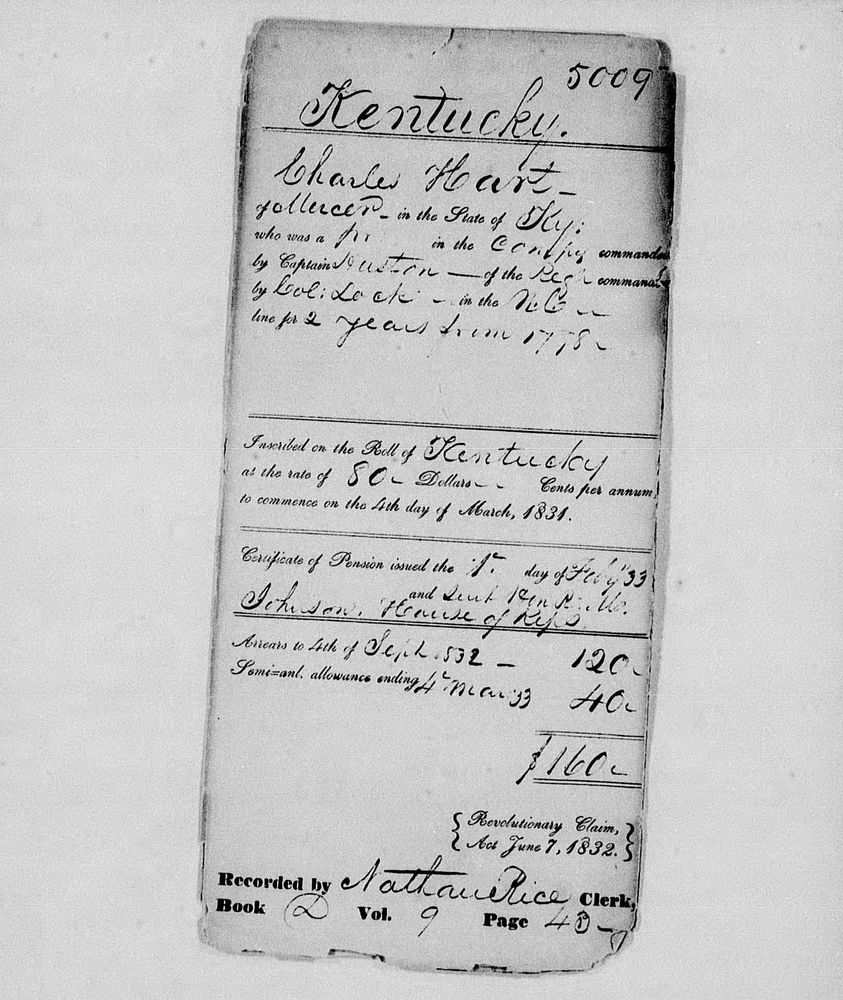 5009
Kentucky.
Charles Hart
of Mercer in the State of Ky:
who was a in the Compy commanded
by Captain Huston of the Regt commanded
by Col: Lock in the N.C
line for 2 years from 1778
Inscribed on the Roll of Kentucky
at the rate of 80 Dollars Cents per annum,
to commence on the 4th day of March, 1831.
Certificate of Pension issued the day of Feby 33
and Sent
Johnson, House of Reps.
Arrears to 4th of Sept 1832 120
Semi-anl. allowance ending 4 Mar 33 40
$160
Revolutionary Claim,
Act June 7, 1832.
Recorded by Nathan Rice Clerk,
Book D Vol. 9 Page